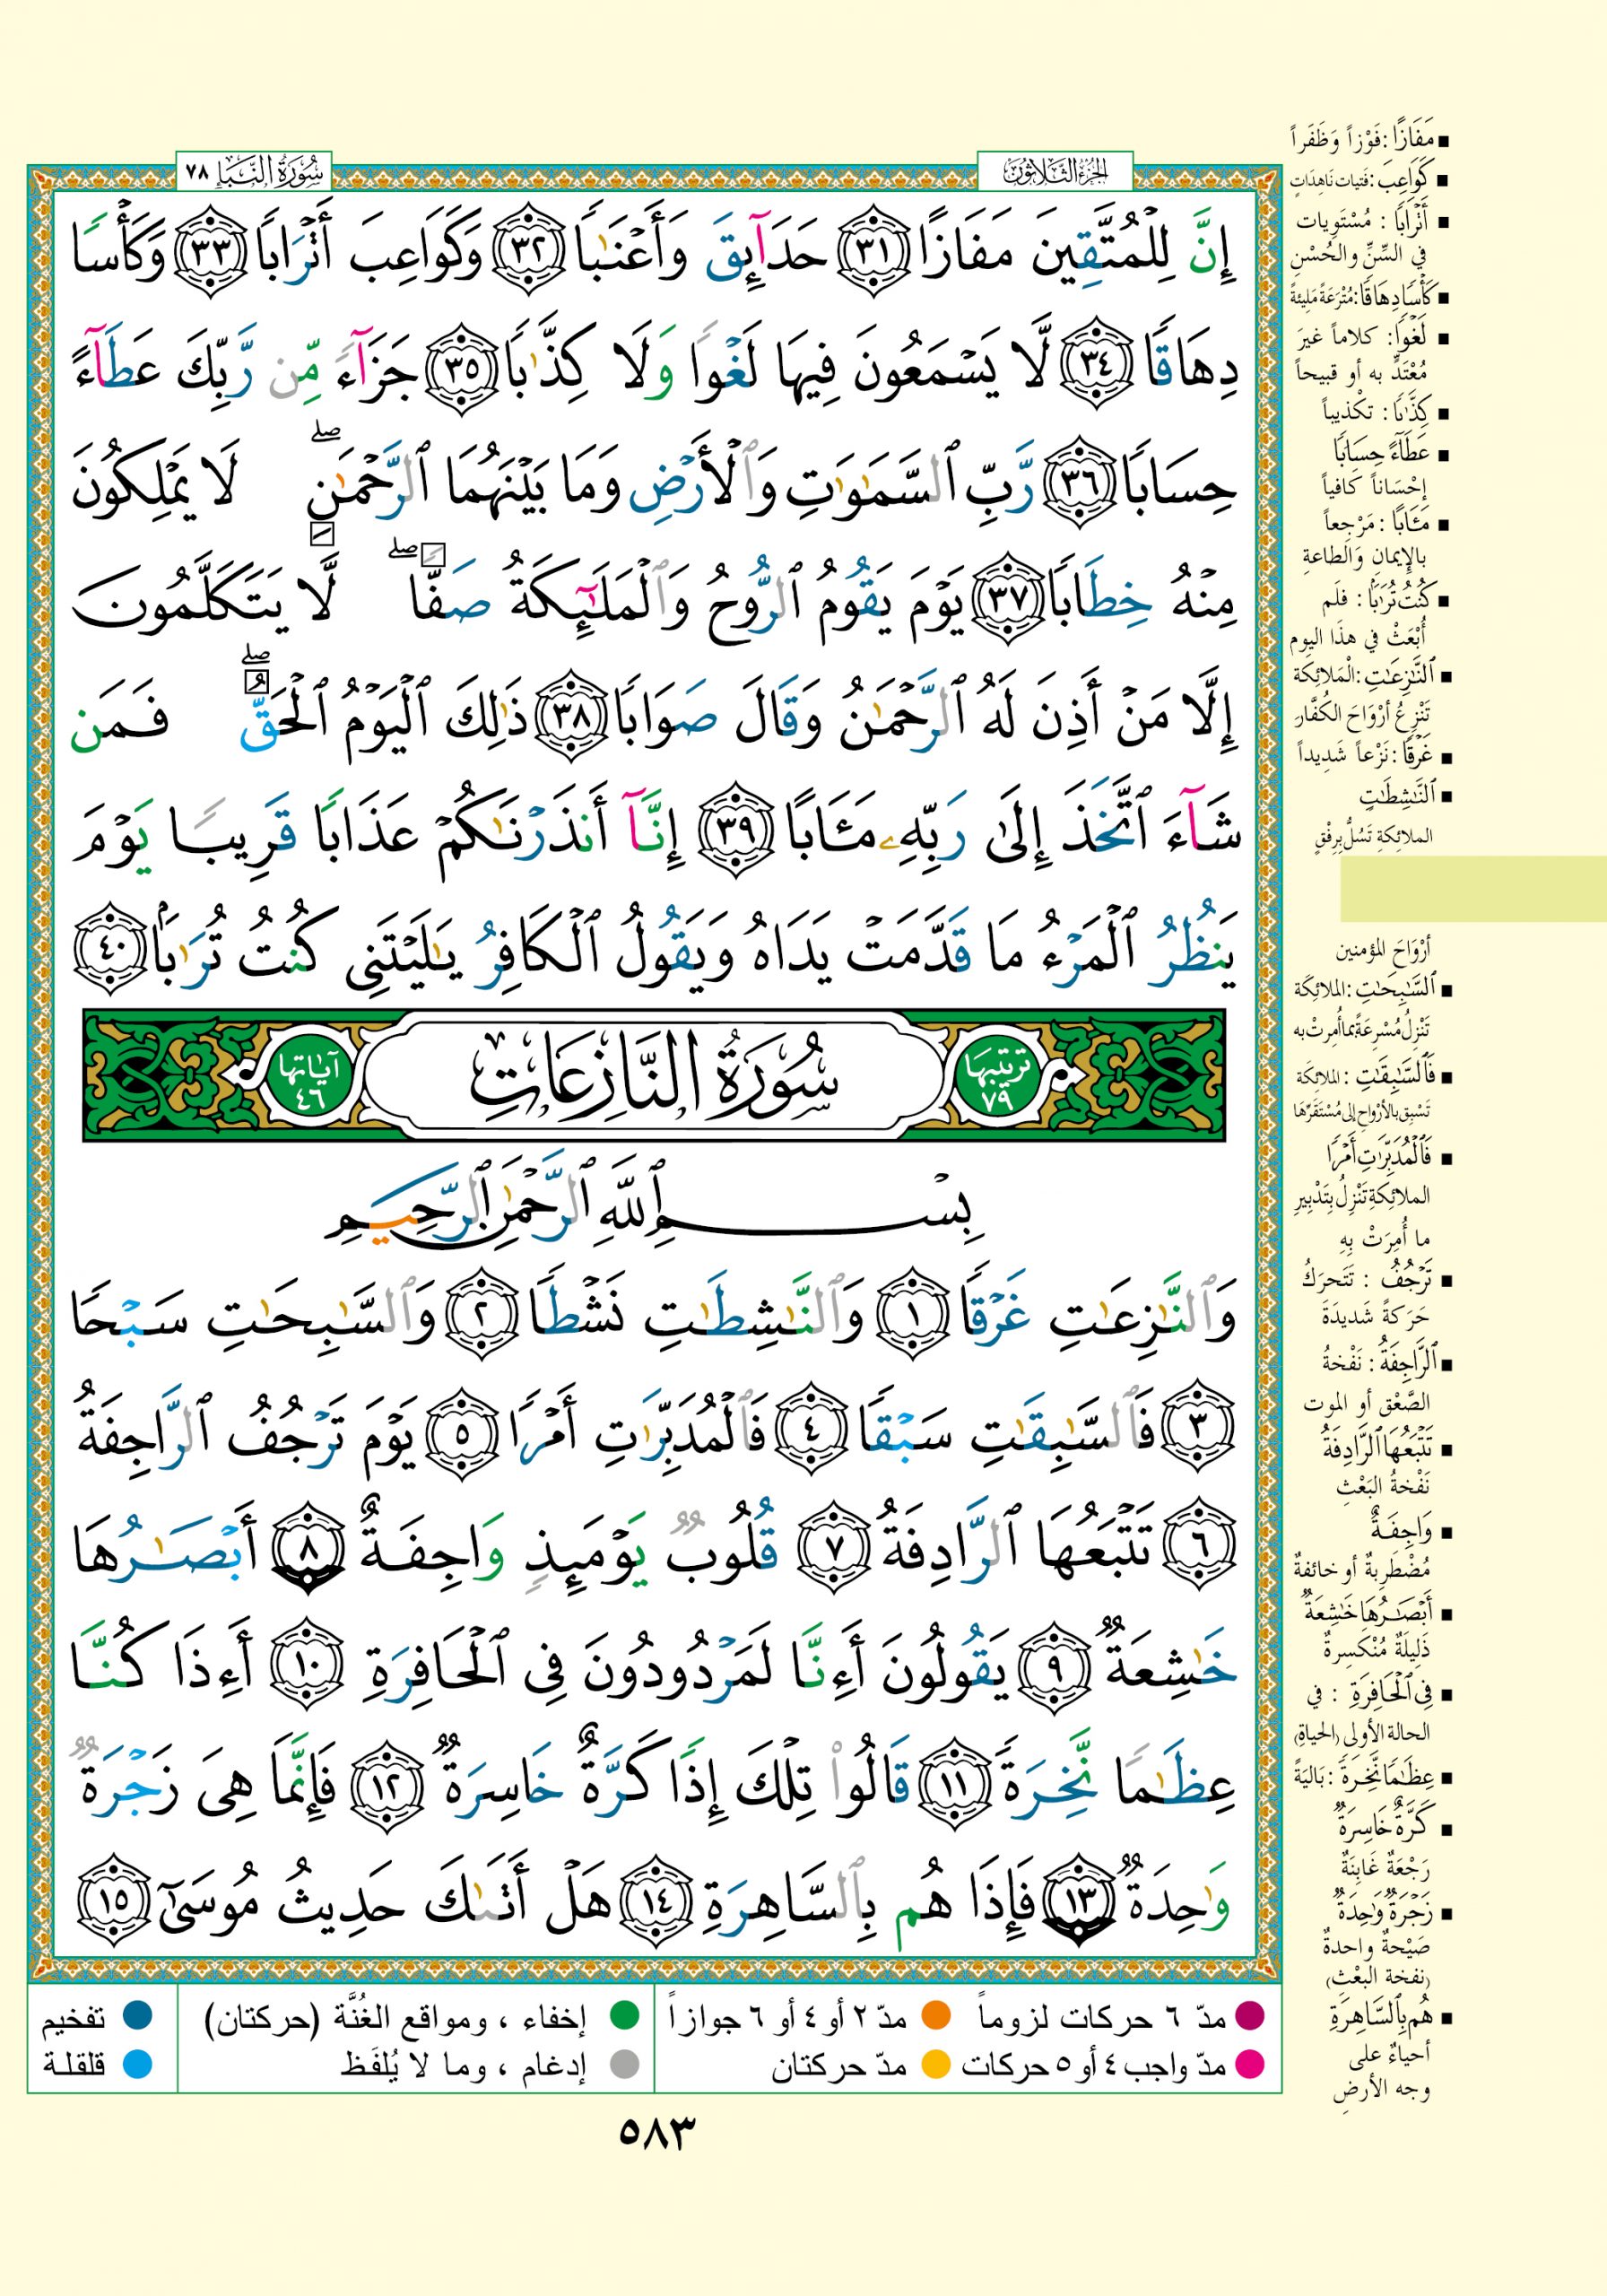 سُورَةُ النَّبَإِ ٧٨
الجُزْءُ الثَّلَاثُونَ
إِنَّ لِلْمُتَّقِينَ مَفَازًا ٣١ حَدَآئِقَ وَأَعْنَٰبًا ٣٢ وَكَوَاعِبَ أَتْرَابًا ٣٣ وَكَأْسًا
دِهَاقًا ٣٤ لَّا يَسْمَعُونَ فِيهَا لَغْوًا وَلَا كِذَّٰبًا ٣٥ جَزَآءً مِّن رَّبِّكَ عَطَآءً
حِسَابًا ٣٦ رَّبِّ ٱلسَّمَٰوَٰتِ وَٱلْأَرْضِ وَمَا بَيْنَهُمَا ٱلرَّحْمَٰنِ ۖ لَا يَمْلِكُونَ
مِنْهُ خِطَابًا ٣٧ يَوْمَ يَقُومُ ٱلرُّوحُ وَٱلْمَلَٰٓئِكَةُ صَفًّا ۖ لَّا يَتَكَلَّمُونَ
إِلَّا مَنْ أَذِنَ لَهُ ٱلرَّحْمَٰنُ وَقَالَ صَوَابًا ٣٨ ذَٰلِكَ ٱلْيَوْمُ ٱلْحَقُّ ۖ فَمَن
شَآءَ ٱتَّخَذَ إِلَىٰ رَبِّهِۦ مَـَٔابًا ٣٩ إِنَّآ أَنذَرْنَٰكُمْ عَذَابًا قَرِيبًا يَوْمَ
يَنظُرُ ٱلْمَرْءُ مَا قَدَّمَتْ يَدَاهُ وَيَقُولُ ٱلْكَافِرُ يَٰلَيْتَنِى كُنتُ تُرَٰبًۢا ٤٠
ترتيبها ٧٩ سُورَةُ النَّازِعَاتِ آياتها ٤٦
بِسْمِ ٱللَّهِ ٱلرَّحْمَٰنِ ٱلرَّحِيمِ
وَٱلنَّٰزِعَٰتِ غَرْقًا ١ وَٱلنَّٰشِطَٰتِ نَشْطًا ٢ وَٱلسَّٰبِحَٰتِ سَبْحًا
٣ فَٱلسَّٰبِقَٰتِ سَبْقًا ٤ فَٱلْمُدَبِّرَٰتِ أَمْرًا ٥ يَوْمَ تَرْجُفُ ٱلرَّاجِفَةُ
٦ تَتْبَعُهَا ٱلرَّادِفَةُ ٧ قُلُوبٌ يَوْمَئِذٍ وَاجِفَةٌ ٨ أَبْصَٰرُهَا
خَٰشِعَةٌ ٩ يَقُولُونَ أَءِنَّا لَمَرْدُودُونَ فِى ٱلْحَافِرَةِ ١٠ أَءِذَا كُنَّا
عِظَٰمًا نَّخِرَةً ١١ قَالُوا۟ تِلْكَ إِذًا كَرَّةٌ خَاسِرَةٌ ١٢ فَإِنَّمَا هِىَ زَجْرَةٌ
وَٰحِدَةٌ ١٣ فَإِذَا هُم بِٱلسَّاهِرَةِ ١٤ هَلْ أَتَىٰكَ حَدِيثُ مُوسَىٰٓ ١٥
مَفَازًا : فَوْزاً وَظَفَراً
كَوَاعِبَ : فَتيات نَاهِدَاتٍ
أَتْرَابًا : مُسْتَوِيات
في السِّنِّ والحُسْنِ
كَأْسًا دِهَاقًا : مُتْرَعَةً مَلِيئةً
لَغْوًا : كلاماً غيرَ
مُعْتَدٍّ به أو قبيحاً
كِذَّٰبًا : تكْذيباً
عَطَآءً حِسَابًا
إحْسَاناً كَافياً
مَـَٔابًا : مَرْجِعاً
بالإيمانِ وَالطاعةِ
كُنتُ تُرَٰبًۢا : فلَم
أُبْعَثْ في هذَا اليومِ
ٱلنَّٰزِعَٰتِ : الْمَلائِكَة
تَنْزِعُ أرْوَاحَ الكُفَّار
غَرْقًا : نَزْعاً شَدِيداً
ٱلنَّٰشِطَٰتِ
الملائِكةِ تَسُلُّ بِرِفْقٍ
أرْوَاحَ المؤمنين
ٱلسَّٰبِحَٰتِ : الملائِكَة
تَنْزِلُ مُسْرِعَةً بما أُمِرتْ به
فَٱلسَّٰبِقَٰتِ : الملائكَة
تَسْبِق بالأرْوَاحِ إلى مُسْتَقَرِّهَا
فَٱلْمُدَبِّرَٰتِ أَمْرًا
الملائِكةِ تَنْزِلُ بِتَدْبِيرِ
ما أُمِرَتْ بِهِ
تَرْجُفُ : تَتَحرَكُ
حَرَكةً شَديدَةَ
ٱلرَّاجِفَةُ : نَفْخةُ
الصَّعْقِ أو الموت
تَتْبَعُهَا ٱلرَّادِفَةُ
نَفْخةُ البَعْثِ
وَاجِفَةٌ
مُضْطَرِبةٌ أو خائفةٌ
أَبْصَٰرُهَا خَٰشِعَةٌ
ذَلِيلَةٌ مُنْكَسِرةٌ
فِى ٱلْحَافِرَةِ : في
الحالة الأولى (الحياةِ)
عِظَٰمًا نَّخِرَةً : بَاليَةً
كَرَّةٌ خَاسِرَةٌ
رَجْعَةٌ غَابِنَةٌ
زَجْرَةٌ وَٰحِدَةٌ
صَيْحةٌ واحدةٌ
(نفخة البعْثِ)
هُم بِٱلسَّاهِرَةِ
أحياءٌ على
وجه الأرضِ
مدّ ٦ حركات لزوماً مدّ ٢ أو ٤ أو ٦ جوازاً إخفاء ، ومواقع الغُنَّة (حركتان) تفخيم
مدّ واجب ٤ أو ٥ حركات مدّ حركتان إدغام ، وما لا يُلفَظ قلقلة
٥٨٣